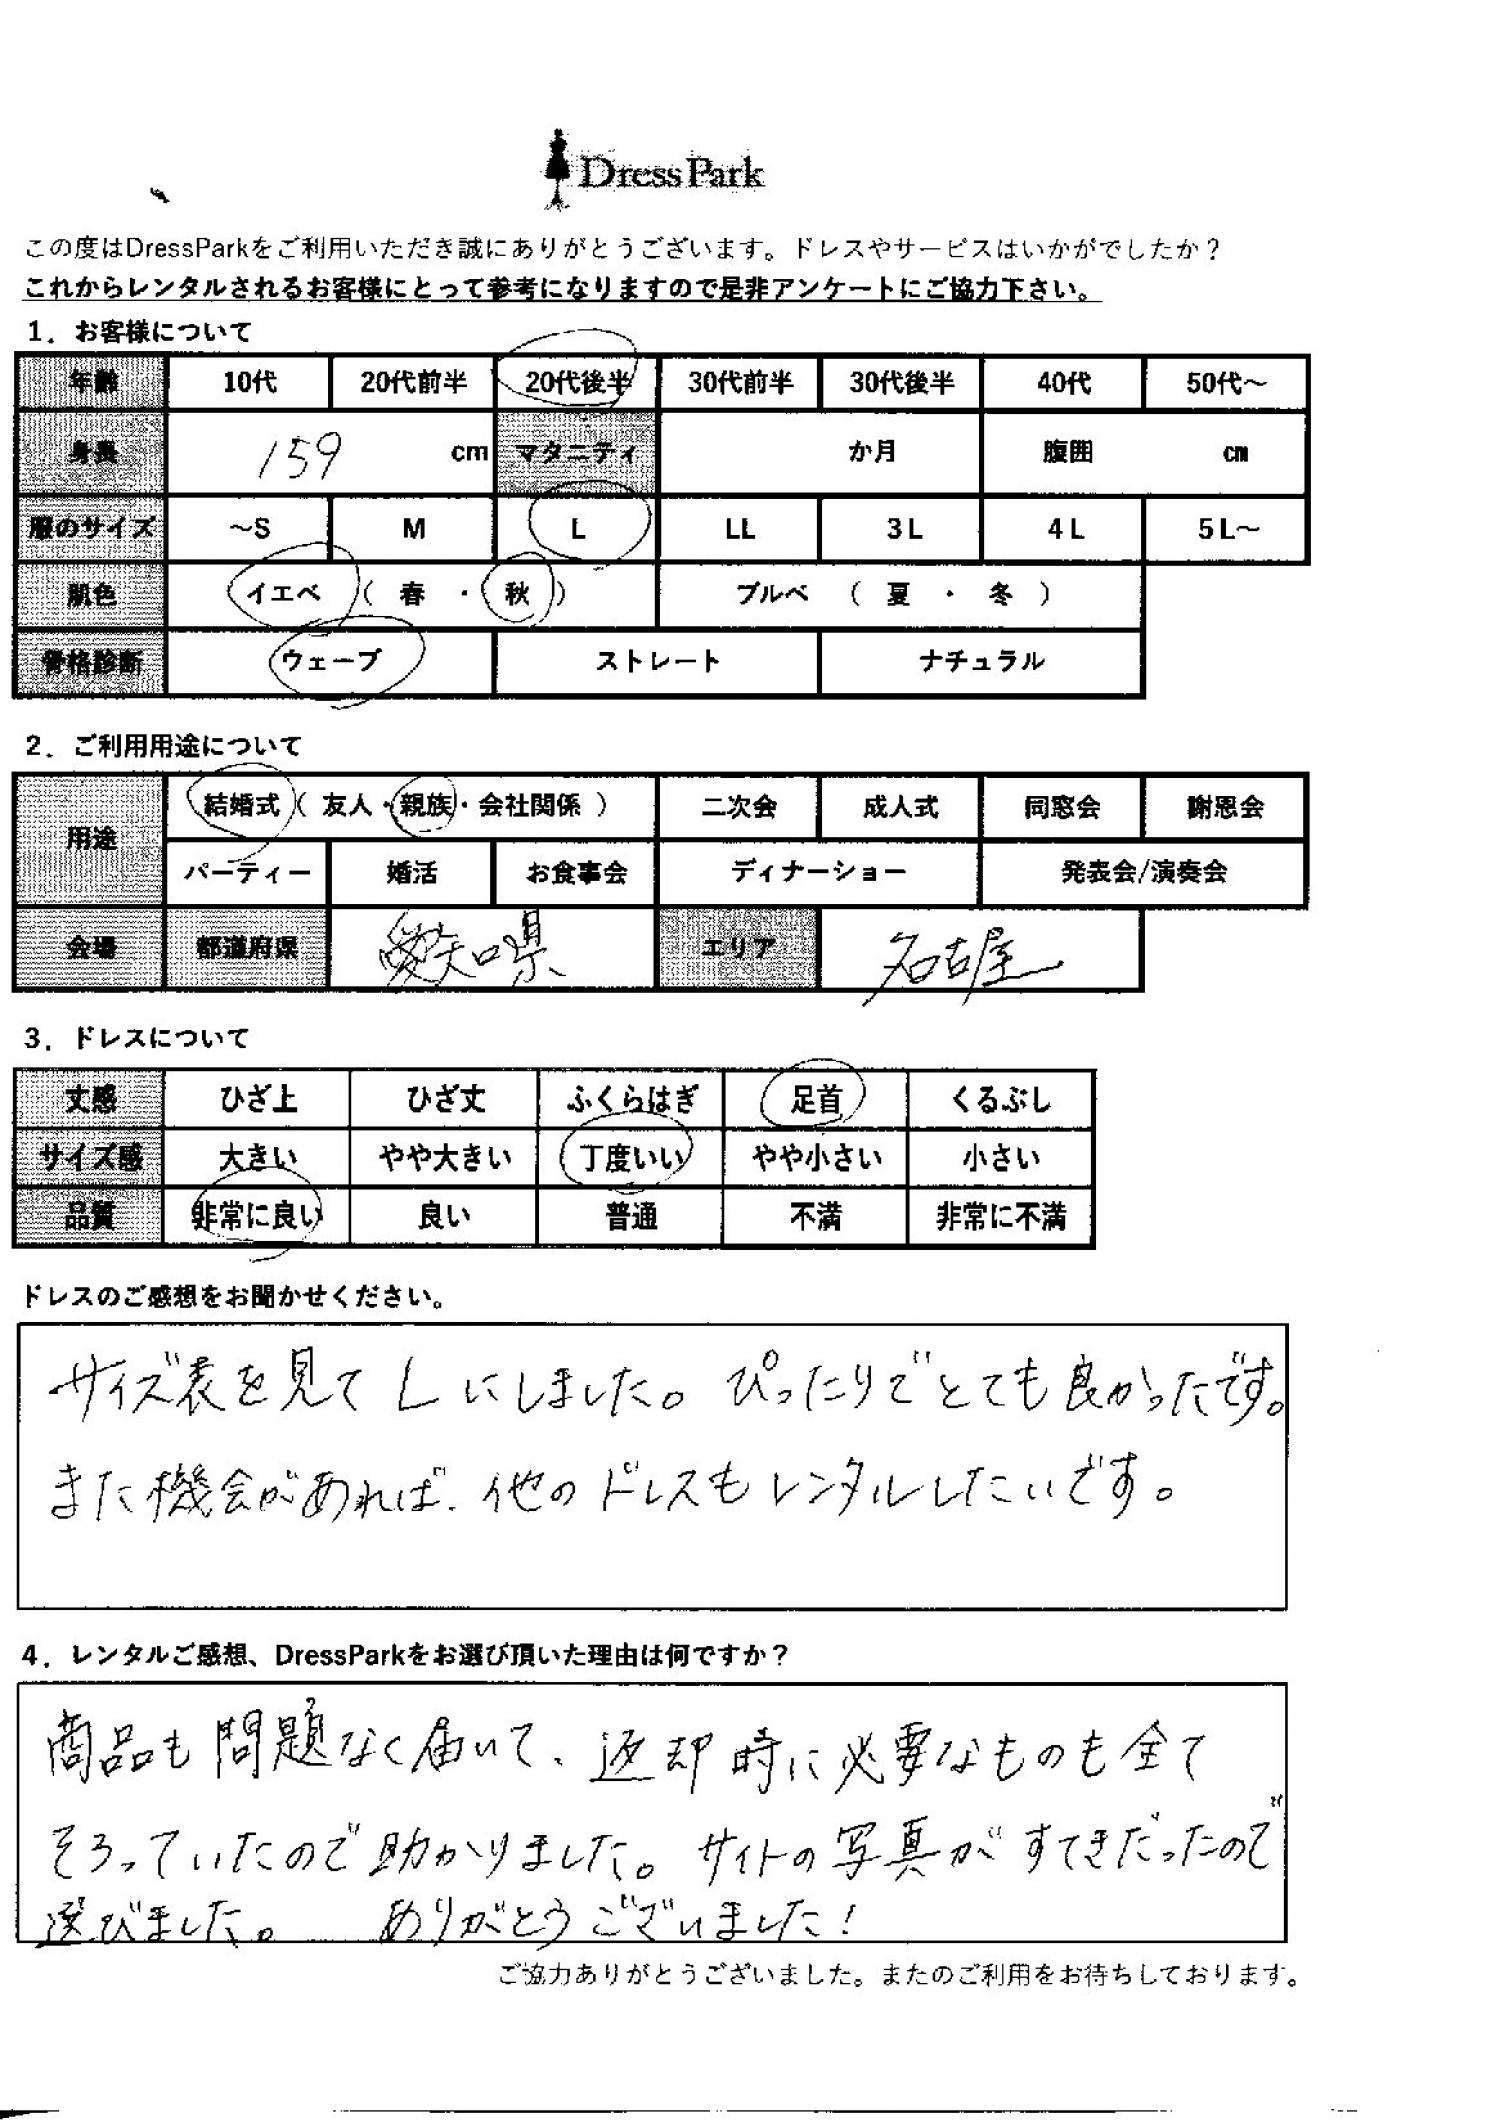 Dress Park
この度はDressParkをご利用いただき誠にありがとうございます。ドレスやサービスはいかがでしたか？
これからレンタルされるお客様にとって参考になりますので是非アンケートにご協力下さい。
1．お客様について
年齢 10代 20代前半 20代後半 30代前半 30代後半 40代 50代～
身長 159 cm マタニティ か月 腹囲 cm
服のサイズ ～S M L LL 3L 4L 5L～
肌色 イエベ （ 春 ・ 秋 ） ブルベ （ 夏 ・ 冬 ）
骨格診断 ウェーブ ストレート ナチュラル
2．ご利用用途について
用途 結婚式（ 友人・親族・会社関係 ） 二次会 成人式 同窓会 謝恩会
パーティー 婚活 お食事会 ディナーショー 発表会/演奏会
会場 都道府県 愛知県 エリア 名古屋
3．ドレスについて
丈感 ひざ上 ひざ丈 ふくらはぎ 足首 くるぶし
サイズ感 大きい やや大きい 丁度いい やや小さい 小さい
品質 非常に良い 良い 普通 不満 非常に不満
ドレスのご感想をお聞かせください。
サイズ表を見てLにしました。ぴったりでとても良かったです。
また機会があれば、他のドレスもレンタルしたいです。
4．レンタルご感想、DressParkをお選び頂いた理由は何ですか？
商品も問題なく届いて、返却時に必要なものも全て
そろっていたので助かりました。サイトの写真がすてきだったので
選びました。 ありがとうございました！
ご協力ありがとうございました。またのご利用をお待ちしております。